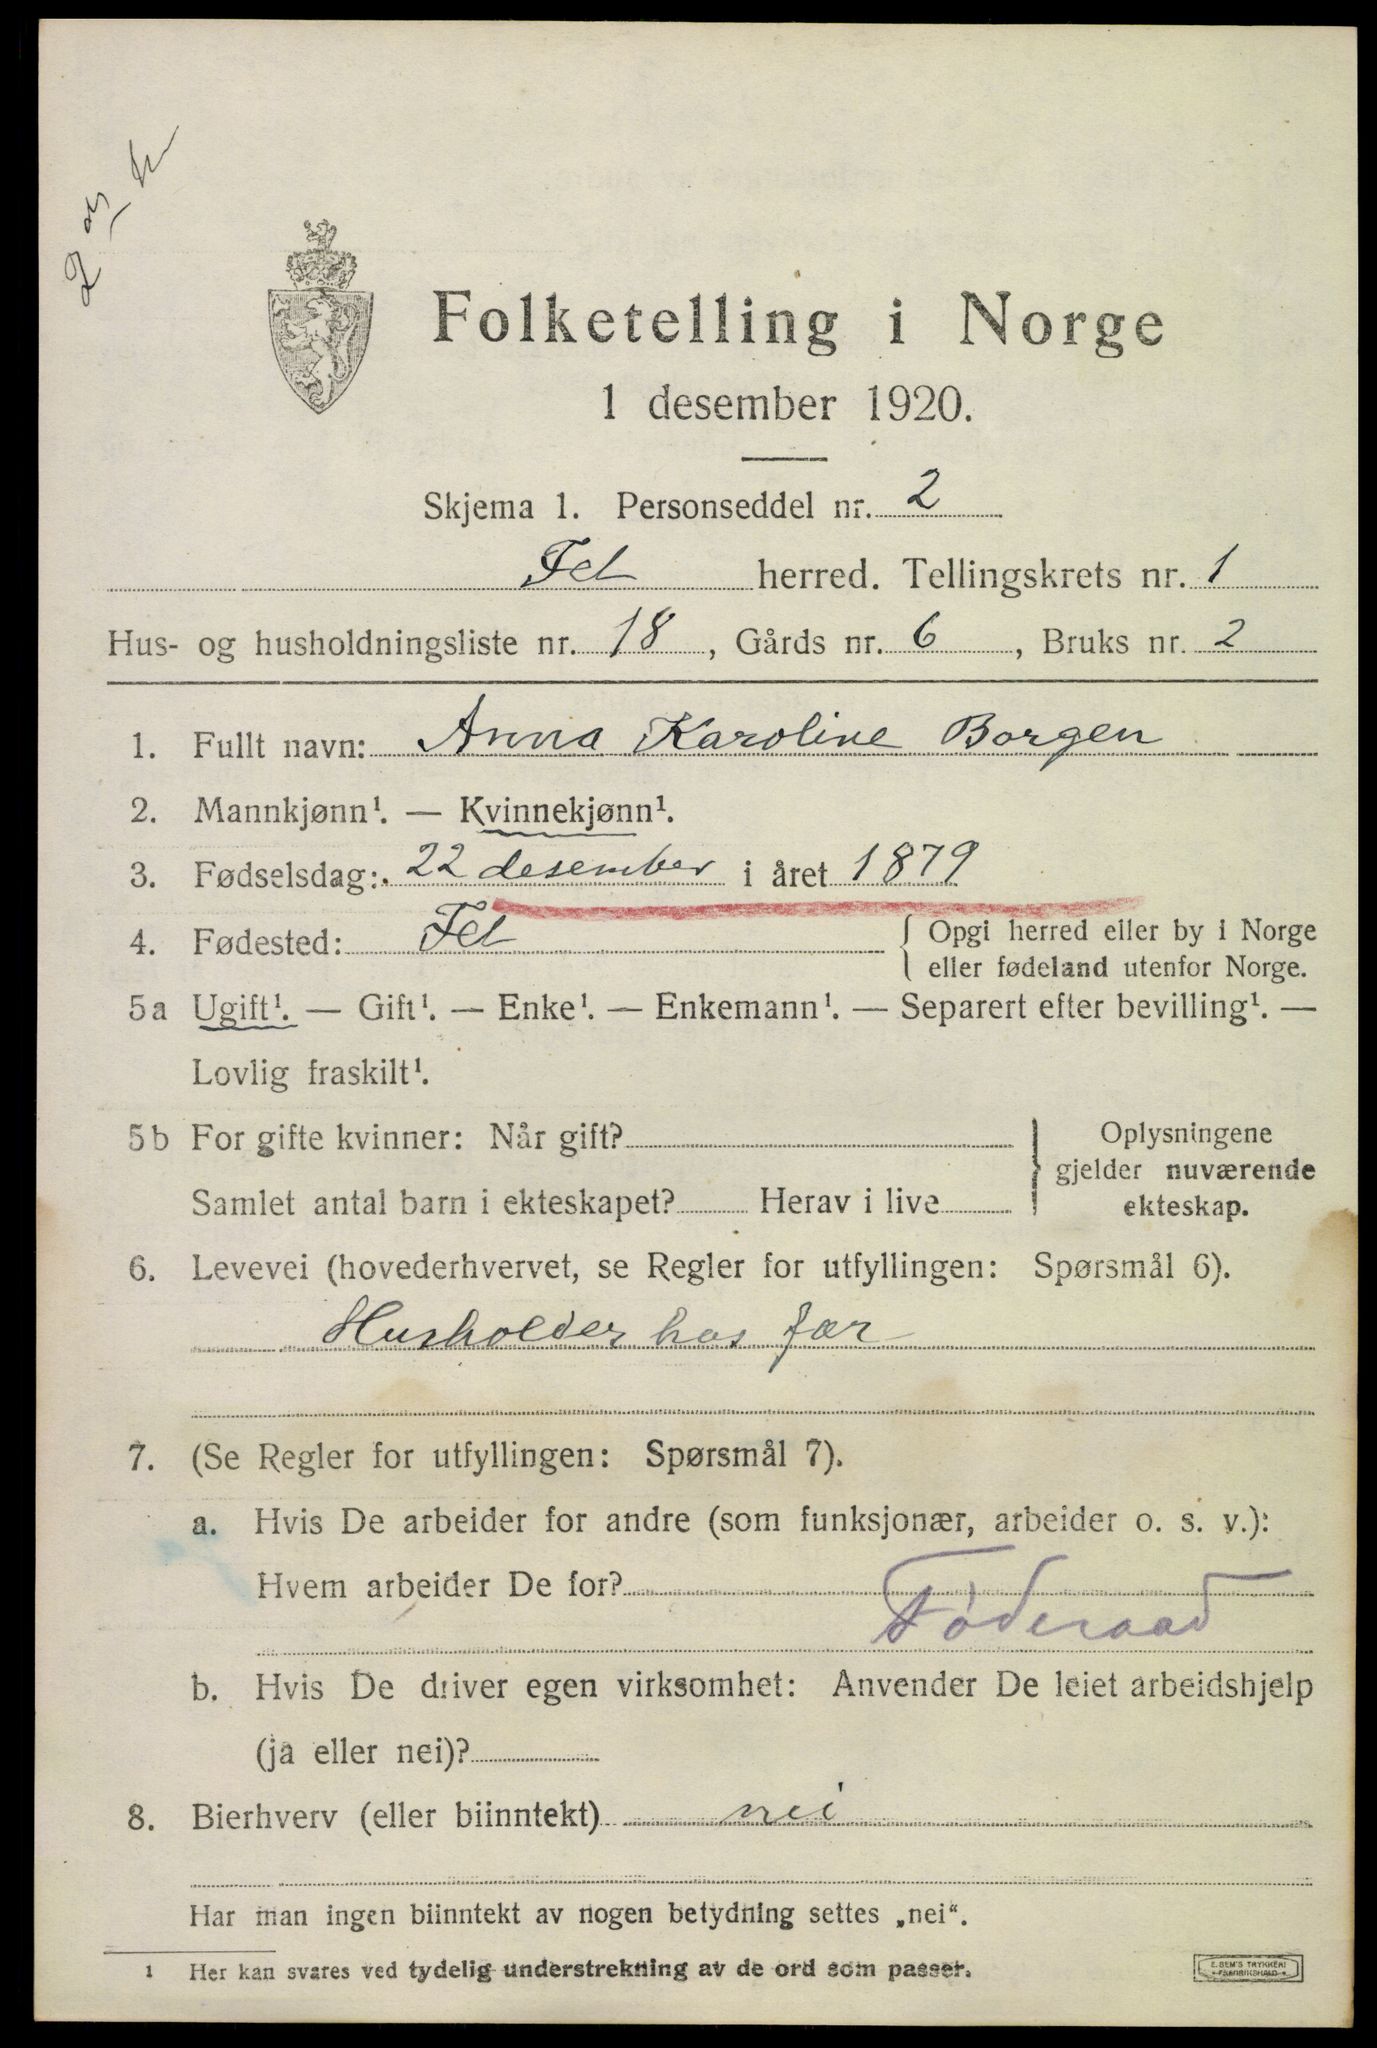 Folketelling i Norge
1 desember 1920.
Skjema 1. Personseddel nr. 2
Fet herred. Tellingskrets nr. 1
Hus- og husholdningsliste nr. 18, Gårds nr. 6, Bruks nr. 2
1. Fullt navn: Anna Karoline Borgen
2. Mannkjønn¹. — Kvinnekjønn¹.
3. Fødselsdag: 22 desember i året 1879
4. Fødested: Fet { Opgi herred eller by i Norge
eller fødeland utenfor Norge.
5a Ugift¹. — Gift¹. — Enke¹. — Enkemann¹. — Separert efter bevilling¹. —
Lovlig fraskilt¹.
5b For gifte kvinner: Når gift? } Oplysningene
gjelder nuværende
Samlet antal barn i ekteskapet? Herav i live
ekteskap.
6. Levevei (hovederhvervet, se Regler for utfyllingen: Spørsmål 6).
Husholder hos far
7. (Se Regler for utfyllingen: Spørsmål 7).
a. Hvis De arbeider for andre (som funksjonær, arbeider o. s. v.):
Hvem arbeider De for?
Føderaad
b. Hvis De driver egen virksomhet: Anvender De leiet arbeidshjelp
(ja eller nei)?
8. Bierhverv (eller biinntekt) nei
Har man ingen biinntekt av nogen betydning settes „nei“.
1 Her kan svares ved tydelig understrekning av de ord som passer.
E. SEM'S TRYKKERI
FREDRIKSHALD